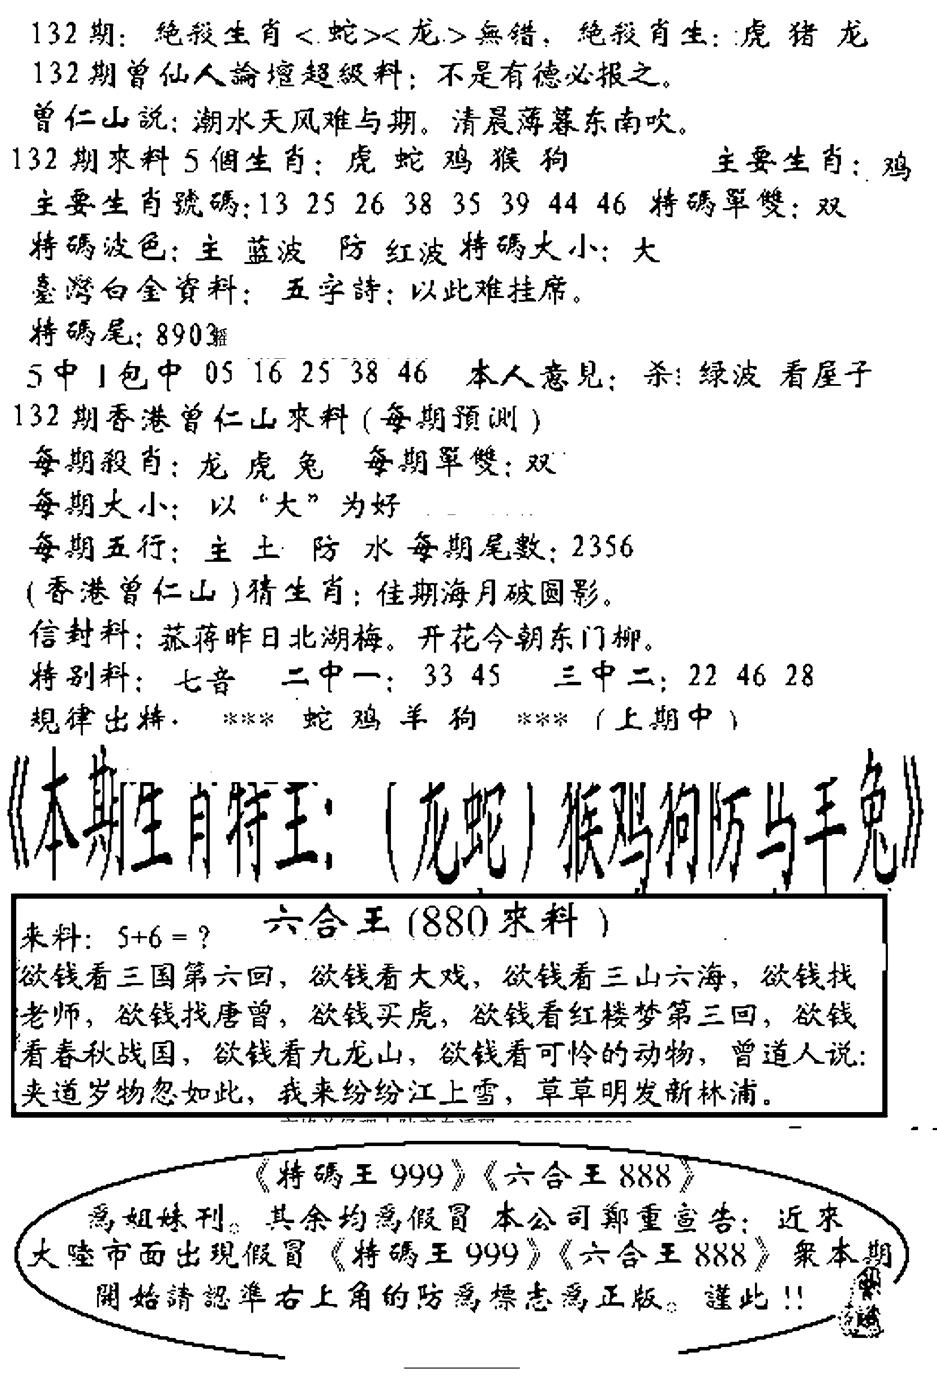 132期：絶殺生肖<蛇><龙>無錯，絶殺肖生：虎 猪 龙
132期曾仙人論壇超級料：不是有德必报之。
曾仁山説：潮水天风难与期。清晨薄暮东南吹。
132期來料5個生肖：虎 蛇 鸡 猴 狗 主要生肖：鸡
主要生肖號碼：13 25 26 38 35 39 44 46 特碼單雙：双
特碼波色：主 蓝波 防 红波 特碼大小：大
臺灣白金資料：五字詩：以此难挂席。
特碼尾：8903
5中1包中 05 16 25 38 46 本人意見：杀：绿波 看屋子
132期香港曾仁山來料(每期預测)
每期殺肖：龙 虎 兔 每期單雙：双
每期大小：以“大”为好
每期五行：主 土 防 水 每期尾數：2356
(香港曾仁山)猜生肖：佳期海月破圆影。
信封料：菰蒋昨日北湖梅。开花今朝东门柳。
特别料：七音 二中一：33 45 三中二：22 46 28
规律出特. *** 蛇 鸡 羊 狗 ***（上期中）
《本期生肖特王：（龙蛇）猴鸡狗防与羊兔》
六合王(880來料)
来料：5+6=？
欲钱看三国第六回，欲钱看大戏，欲钱看三山六海，欲钱找
老师，欲钱找唐曾，欲钱买虎，欲钱看红楼梦第三回，欲钱
看春秋战国，欲钱看九龙山，欲钱看可怜的动物，曾道人说：
夹道岁物忽如此，我来纷纷江上雪，草草明发新林浦。
《特碼王999》《六合王888》
爲姐妹刊。其余均爲假冒 本公司鄭重宣告：近來
大陸市面出現假冒《特碼王999》《六合王888》衆本期
開始請認準右上角的防爲標志爲正版。謹此!!